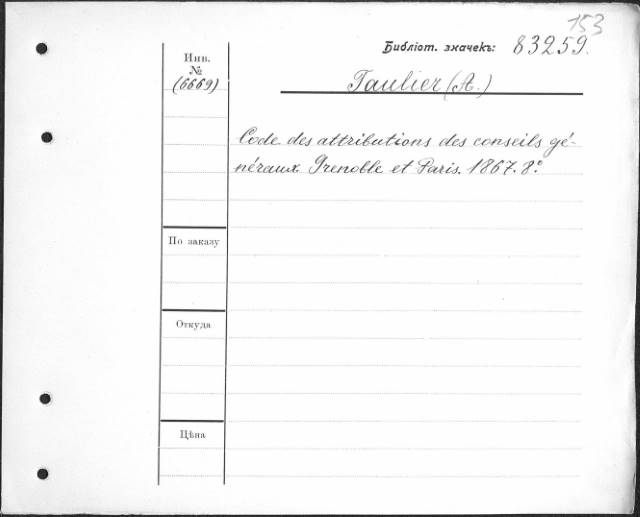 153
Библіот. значекъ: 83259.
Инв.
№
(6669)
Taulier (A.)
Code des attributions des conseils gé-
néraux. Grenoble et Paris. 1867. 8º.
По заказу
Откуда
Цѣна